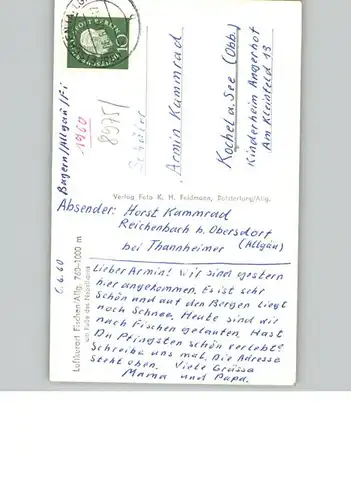 Bayern/Allgäu/Fi
1960
8975/
Schüler
Armin Kammrad
Kochel a. See (Obb.)
Kinderheim Angerhof
Am Kleinfeld 13
Verlag Foto K. H. Feldmann, Bolsterlang/Allg.
Absender: Horst Kammrad
Reichenbach b. Obersdorf
bei Thannheimer (Allgäu)
Luftkurort Fischen/Allg. 760-1000 m
am Fuße des Nebelhorns
6.6.60
Lieber Armin! Wir sind gestern
hier angekommen. Es ist sehr
schön und auf den Bergen liegt
noch Schnee. Heute sind wir
nach Fischen gelaufen. Hast
Du Pfingsten schön verlebt?
Schreibe uns mal. Die Adresse
steht oben. Viele Grüsse
Mama und Papa.